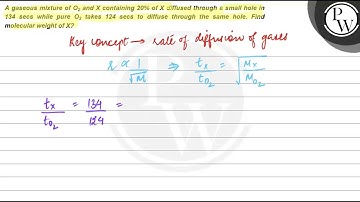 A gaseous mixture of O₂ and X containing 20% of X diffused through a small hole in
134 secs while pure O₂ takes 124 secs to diffuse through the same hole. Find
molecular weight of X?
Key concept → rate of diffusion of gases
r ∝ 1/√M ⇒ tx/tO₂ = √(Mx/MO₂)
tx/tO₂ = 134/124 =